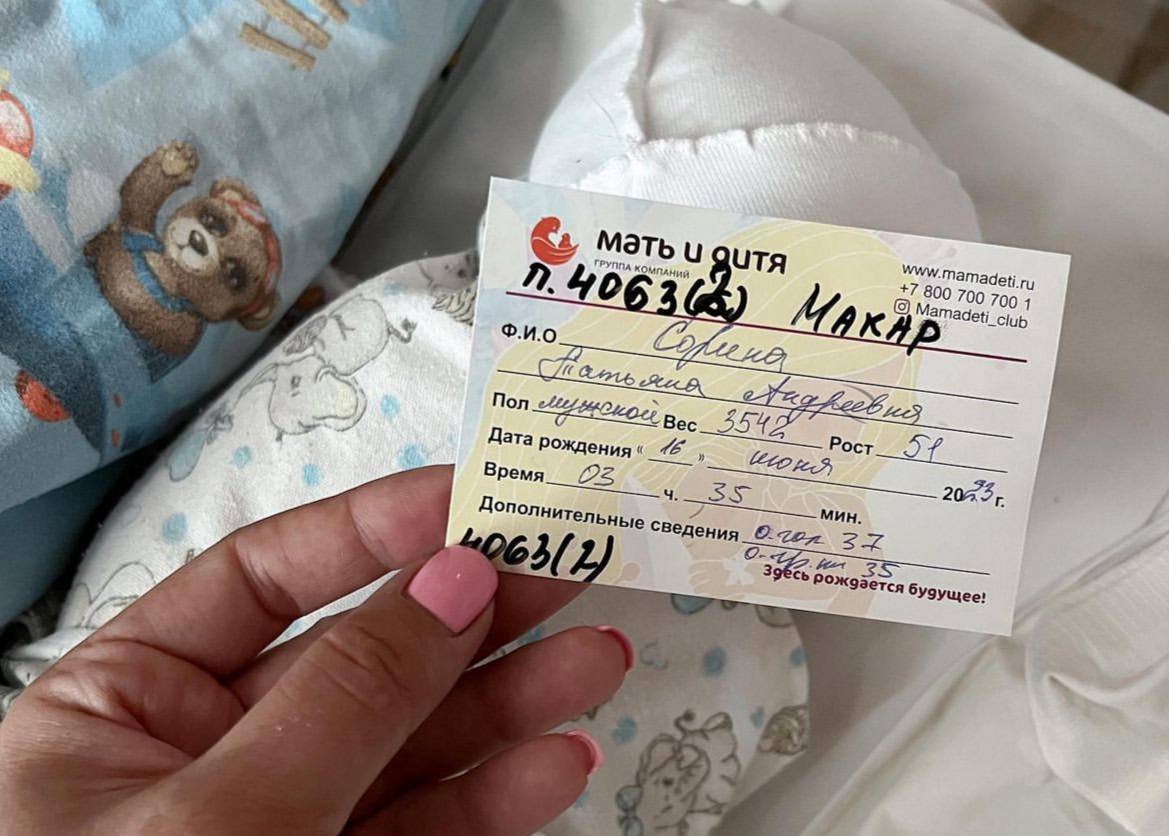 мать и дитя
ГРУППА КОМПАНИЙ
www.mamadeti.ru
+7 800 700 700 1
Mamadeti_club
п. 4063(2) МАКАР
Ф.И.О Сорина
Татьяна Андреевна
Пол мужской Вес 3542 Рост 51
Дата рождения « 16 » июня 2023 г.
Время 03 ч. 35 мин.
Дополнительные сведения о. гол 37
о. гр. кл 35
4063(2)
Здесь рождается будущее!